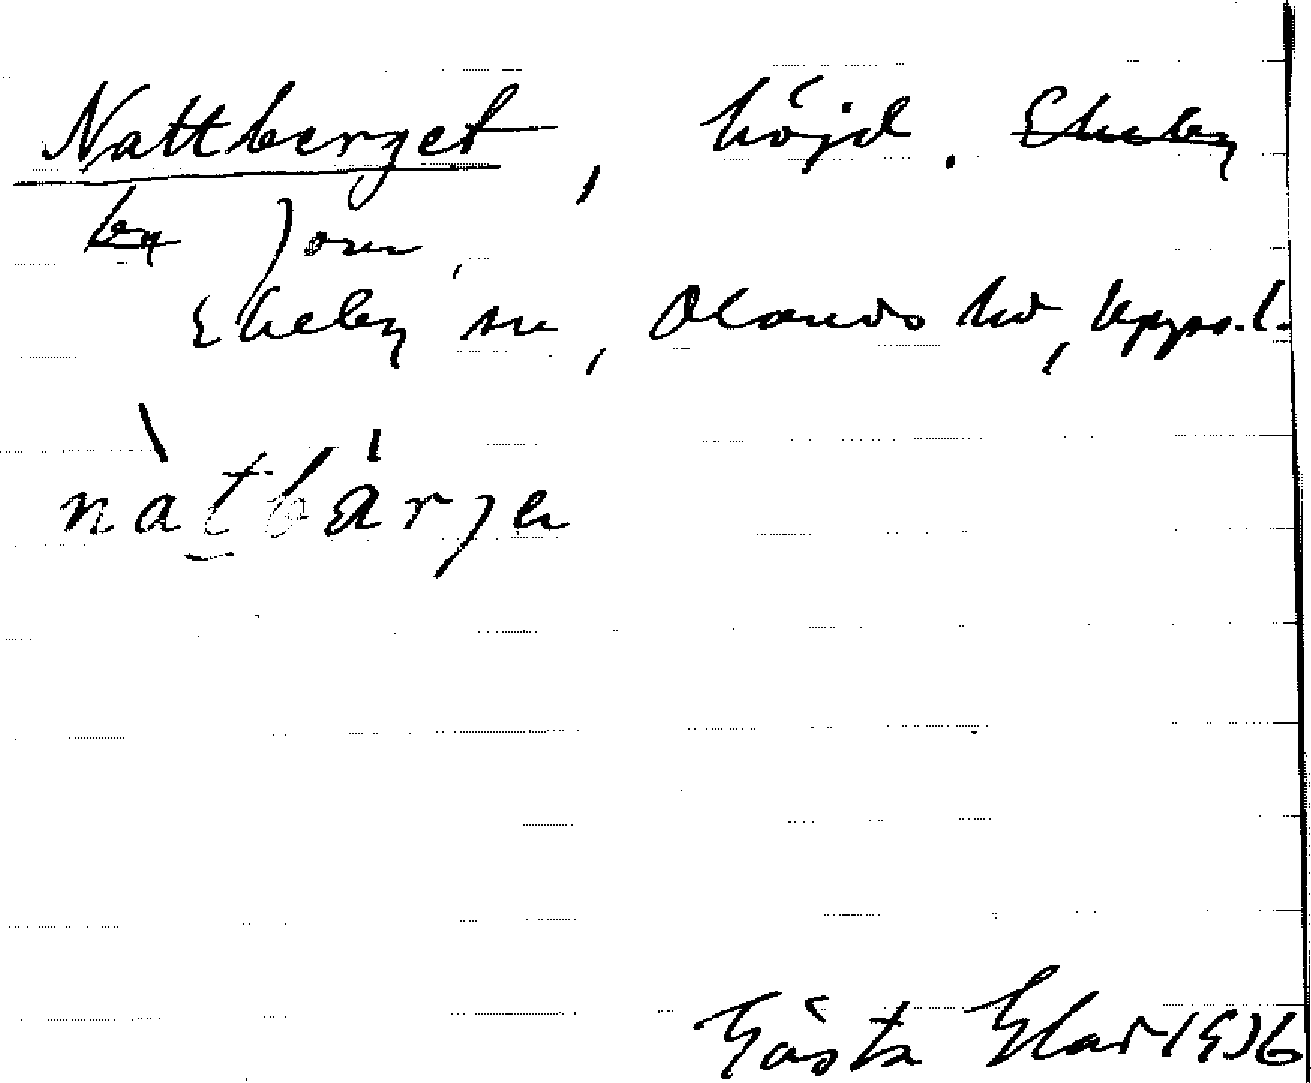 Nattberget, höjd. Ekeby
by
Ekeby sn, Olands hd, Upps. l.
nàt̲bárje
Gösta 1936